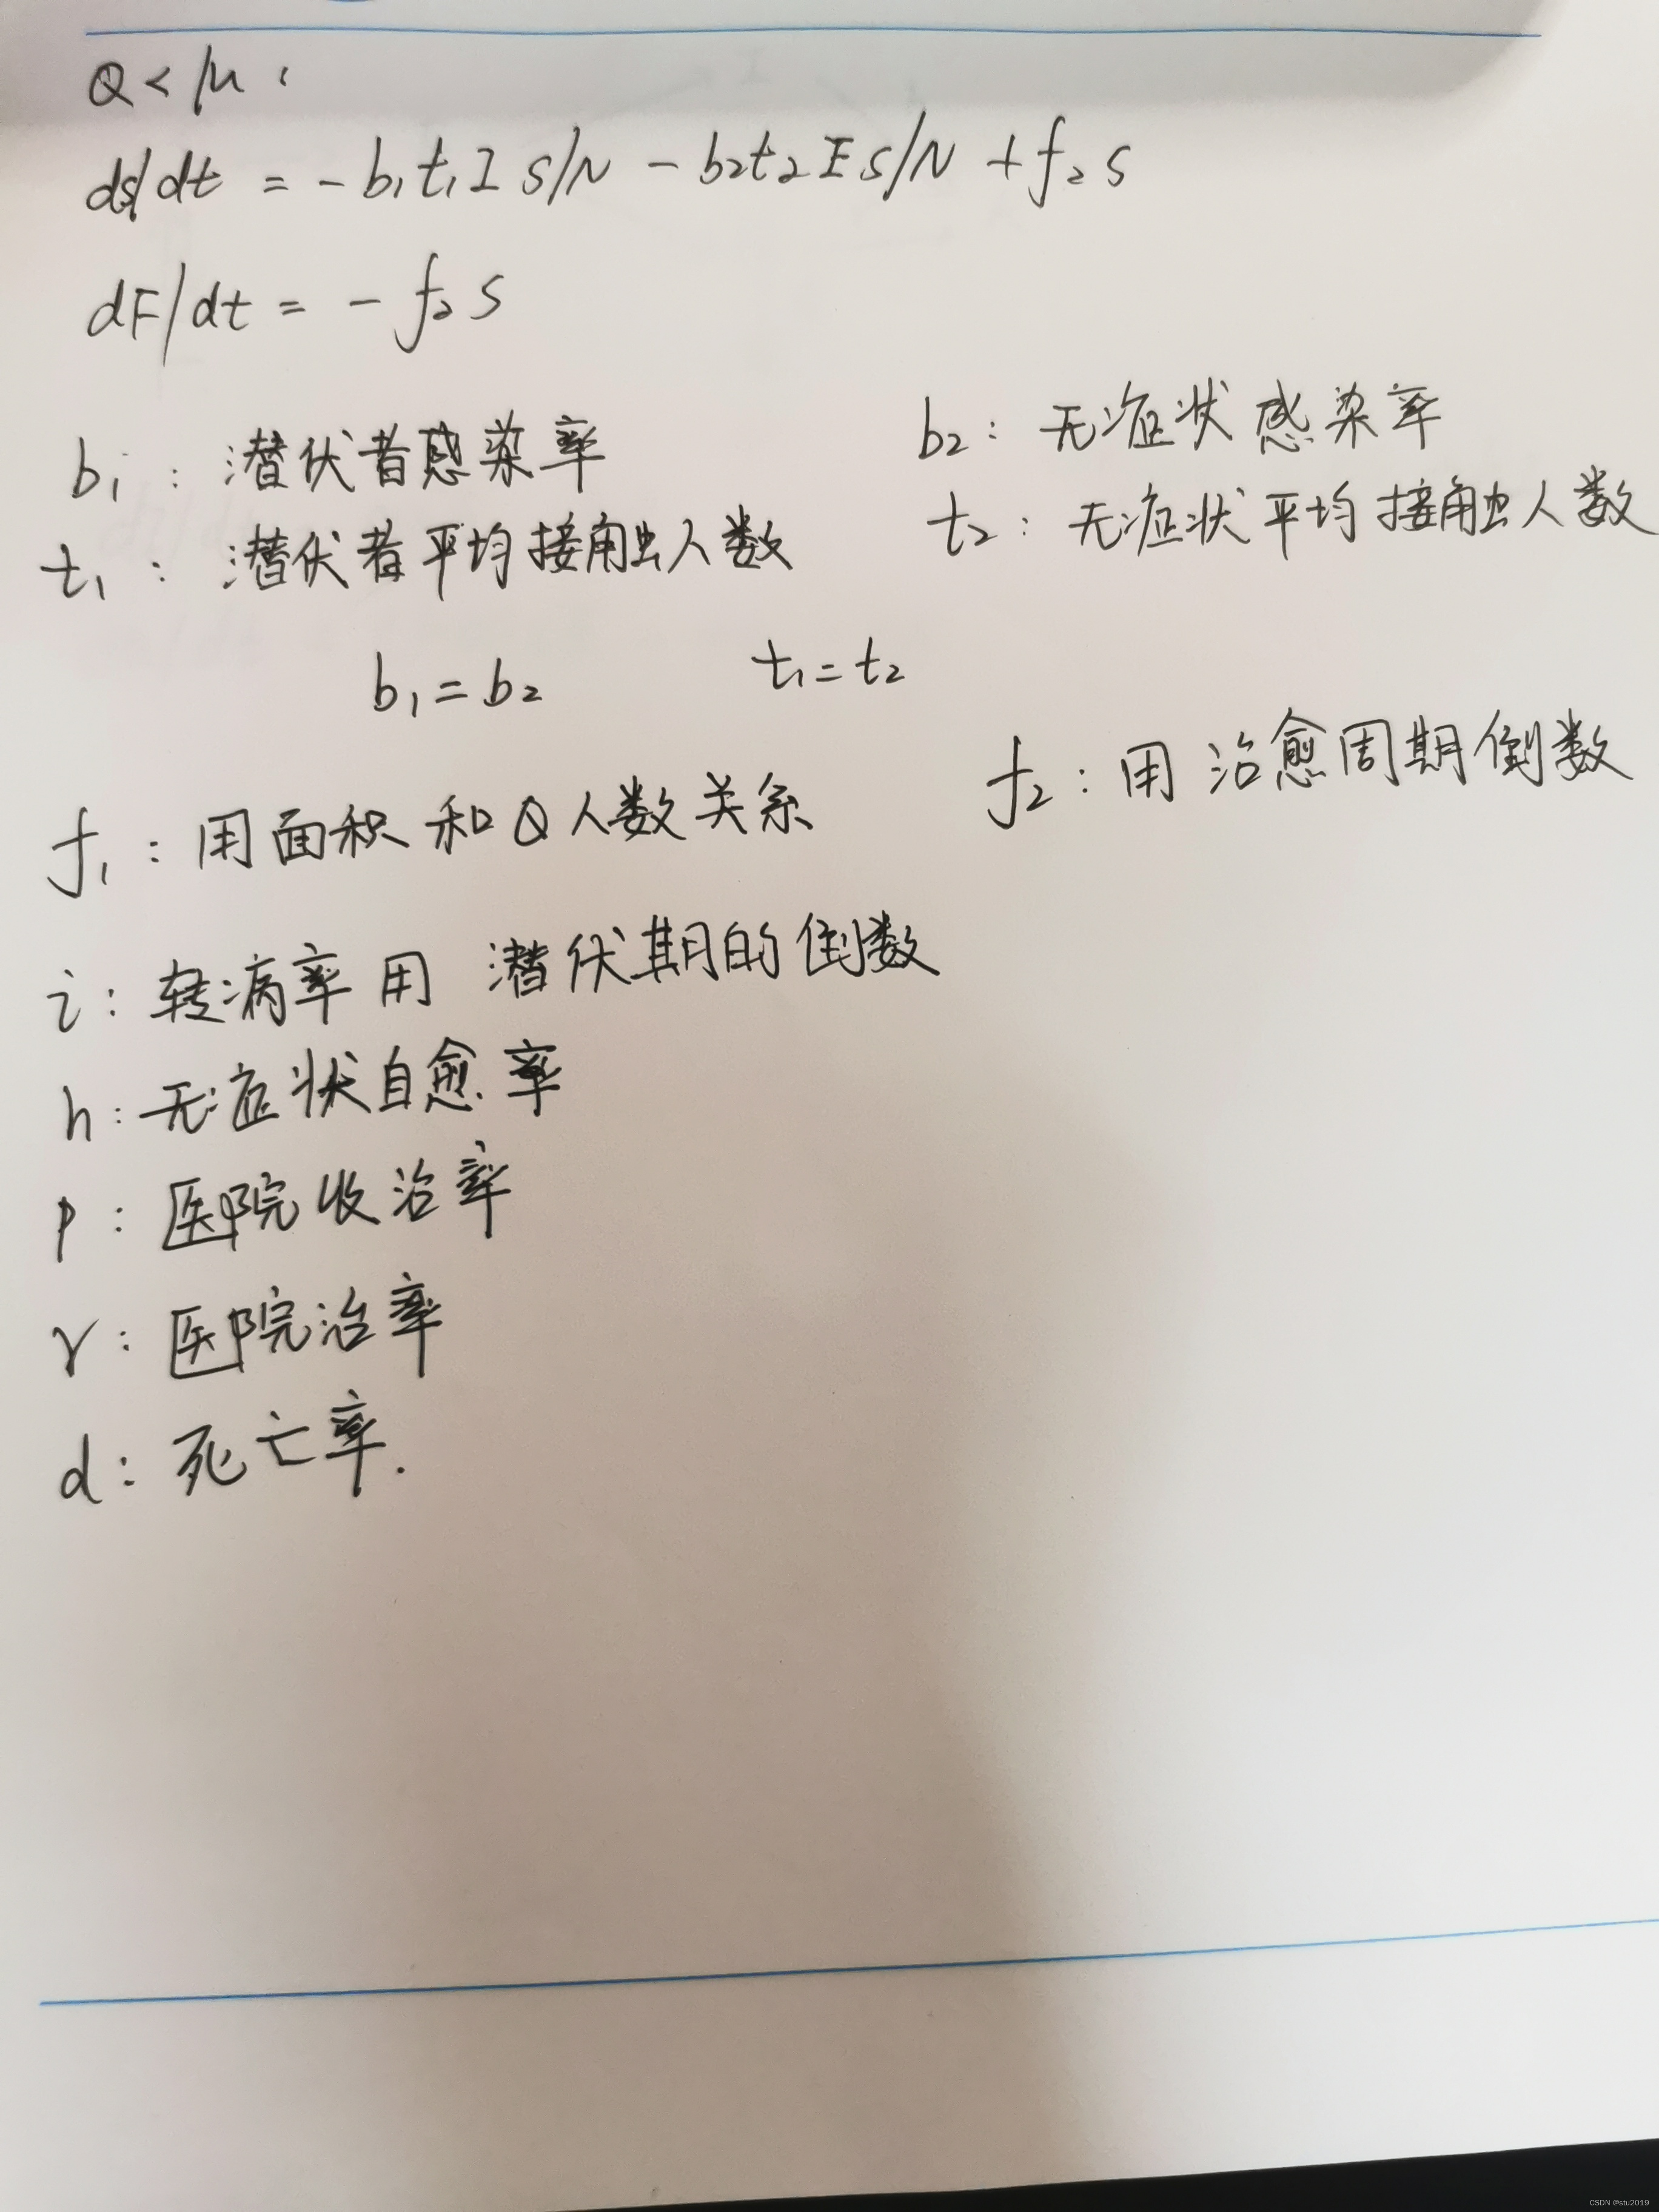 Q < μ :
ds/dt = - b₁t₁I S/N - b₂t₂E S/N + f₂ S
dF/dt = - f₂ S
b₁ : 潜伏者感染率
b₂ : 无症状感染率
t₁ : 潜伏者平均接触人数
t₂ : 无症状平均接触人数
b₁ = b₂ t₁ = t₂
f₁ : 用面积和Q人数关系
f₂ : 用治愈周期倒数
i : 转病率用 潜伏期的倒数
h : 无症状自愈率
p : 医院收治率
r : 医院治率
d : 死亡率.
CSDN @stu2019